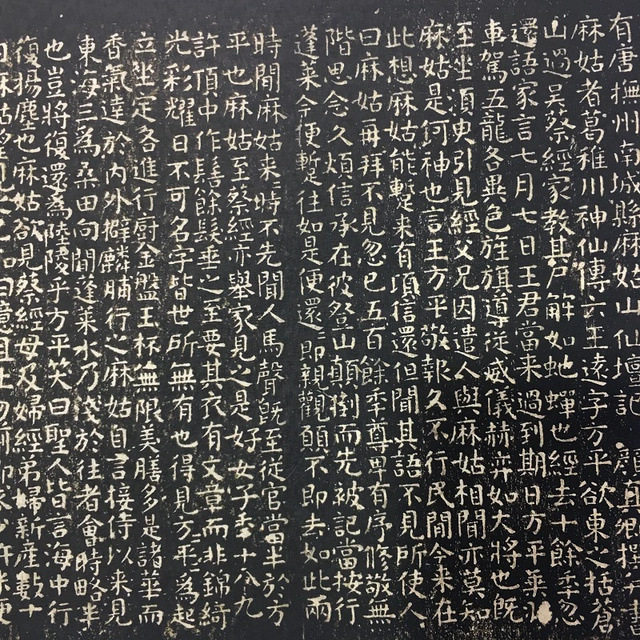 有唐撫州南城縣麻姑山仙壇記 顏真卿撰并書
麻姑者葛稚川神仙傳云王遠字方平欲東之括蒼
山過吳蔡經家教其尸解如虵蟬也經去十餘年忽
還語家言七月七日王君當來過到期日方平乘羽
車駕五龍各異色旌旗導從威儀赫弈如大將也既
至坐須臾引見經父兄因遣人與麻姑相聞亦莫知
麻姑是何神也言王方平敬報久不行民間今來在
此想麻姑能蹔來有頃信還但聞其語不見所使人
曰麻姑再拜不見忽已五百餘年尊卑有序修敬無
階思念久煩信承在彼登山顛倒而先被記當按行
蓬萊今便蹔往如是便還即親觀願不即去如此兩
時間麻姑來來時不先聞人馬聲既至從官當半於方
平也麻姑至蔡經亦舉家見之是好女子年十八九
許頂中作髻餘髮垂之至要其衣有文章而非錦綺
光彩耀日不可名字皆世所無有也得見方平方平為起
立坐定各進行廚金盤玉杯無限美膳多是諸華而
香氣達於內外擗麟脯行之麻姑自言接侍以來見
東海三為桑田向間蓬萊水乃淺於往者會時略半
也豈將復還為陸陵乎方平笑曰聖人皆言海中行
復揚塵也麻姑欲見蔡經母及婦經弟婦新產數十
日麻姑望見之已知曰噫且止勿前即求少許米便